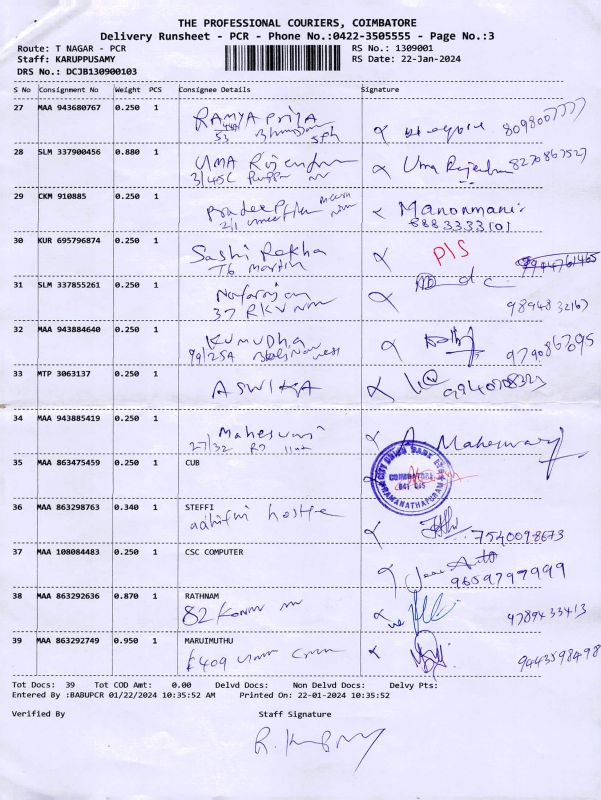 THE PROFESSIONAL COURIERS, COIMBATORE
Delivery Runsheet - PCR - Phone No.:0422-3505555 - Page No.:3
Route: T NAGAR - PCR RS No.: 1309001
Staff: KARUPPUSAMY RS Date: 22-Jan-2024
DRS No.: DCJB130900103
S No Consignment No Weight PCS Consignee Details Signature
27 MAA 943680767 0.250 1 RAMYA PriyA
53 8098007777
28 SLM 337900456 0.880 1 UMA Rajendran Uma Rajendran 8270867527
3/45C
29 CKM 910885 0.250 1 Pradeep Manonmani
2/1 8883333101
30 KUR 695796874 0.250 1 Sashi Rekha P/S
T6 Martin 9944761465
31 SLM 337855261 0.250 1 Natarajan
37 RKV 9894832167
32 MAA 943884640 0.250 1 KUMUDHA
99/25A 9790863095
33 MTP 3063137 0.250 1 ASWIKA
34 MAA 943885419 0.250 1 Maheswari A Maheswary
27/32
35 MAA 863475459 0.250 1 CUB
CITY UNION BANK LTD
COIMBATORE
641 045
RAMANATHAPURAM
36 MAA 863298763 0.340 1 STEFFI
hostel 7540098673
37 MAA 108084483 0.250 1 CSC COMPUTER
9659797999
38 MAA 863292636 0.870 1 RATHNAM
82 9789433413
39 MAA 863292749 0.950 1 MARUIMUTHU
F409 9443598498
Tot Docs: 39 Tot COD Amt: 0.00 Delvd Docs: Non Delvd Docs: Delvy Pts:
Entered By :BABUPCR 01/22/2024 10:35:52 AM Printed On: 22-01-2024 10:35:52
Verified By Staff Signature